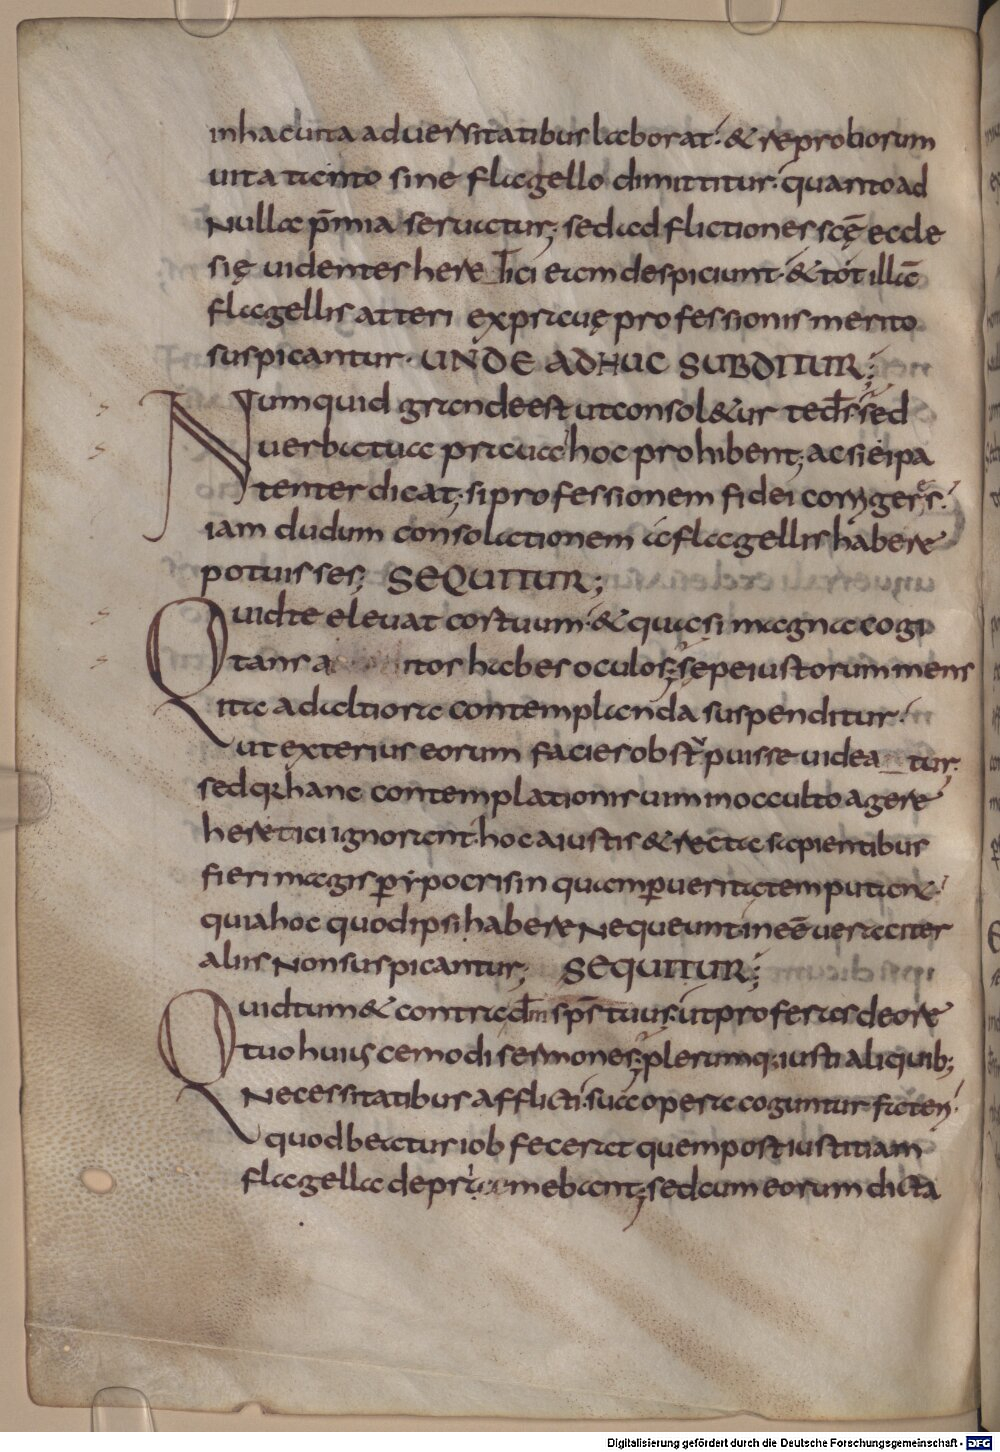 in hac uita aduersitatibus laborat. & reproborum
uita tanto sine flagello dimittitur. quanto ad
nulla p̄mia seruatur; sed ad flictiones scę̄ eccle
się uidentes here_tici eam despiciunt. & tot illā
flagellis atteri ex prauę professionis merito
suspicantur. UNDE ADHUC SUBDITUR;
Numquid grande est ut consol&ur te d̄s. sed
uerba tua praua hoc prohibent; ac si ei pa
tenter dicat; si professionem fidei corrigeres.
iam dudum consolationem a flagellis habere
potuisses; SEQUITUR;
Quid te eleuat cor tuum. & quasi magna cogi
tans a    tos habes oculos; sepe iustorum mens
ita ad altiora contemplanda suspenditur.
ut exterius eorum facies obstupuisse uidea_tur.
sed q̄ hanc contemplationis uim in occulto agere
heretici ignorant. hoc a iustis & recta sapientibus
fieri magis p̱ ypocrisin quam p̱ ueritatem putant.
quia hoc quod ipsi habere nequeunt. in eē ueraciter
aliis non suspicantur; SEQUITUR;
Quid tum& contra dm̄ sps̄ tuus. ut proferas de ore
tuo huiuscemodi sermones; plerumq; iusti aliquib;
necessitatibus afflicti. sua opera coguntur fateri.
quod beatus iob fecerat quem post iustitiam
flagella depraemebant; sed cum eorum dicta
Digitalisierung gefördert durch die Deutsche Forschungsgemeinschaft - DFG